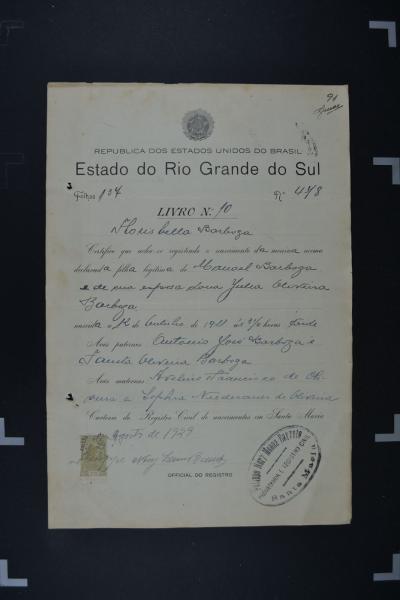 91
REPUBLICA DOS ESTADOS UNIDOS DO BRASIL
Estado do Rio Grande do Sul
Folhas 134 Nº 478
LIVRO N.º 10
Florisbella Barboza
Certifico que acha-se registrado o nascimento da menina acima
declarada filha legitima de Manoel Barboza
e de sua esposa dona Julia Oliveira
Barboza
nascida a 12 de Outubro de 1911 ás horas
Avós paternos Antonio José Barboza e
Oliveira Barboza
Avós maternos Avelino Francisco de Oli-
veira e Sophia de Oliveira
Cartorio do Registro Civil de nascimentos em Santa Maria
Agosto de 1929
OFFICIAL DO REGISTRO
Santa Maria